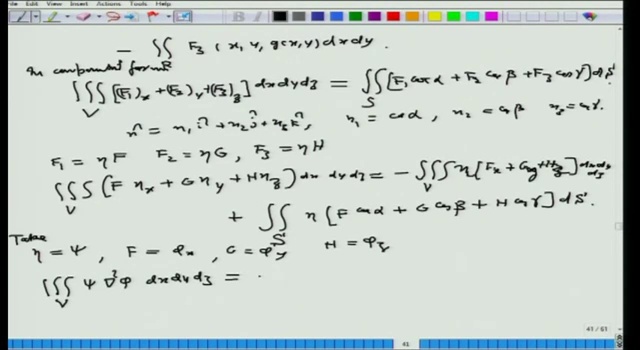 View Insert Actions Tools Help
- ∬_R F₃ (x, y, g(x,y)) dxdy.
In component form
∭_V [(F₁)_x + (F₂)_y + (F₃)_z] dxdydz = ∬_S [F₁ cos α + F₂ cos β + F₃ cos γ] dS
n̂ = n₁ î + n₂ ĵ + n₃ k̂, n₁ = cos α, n₂ = cos β n₃ = cos γ.
F₁ = ηF F₂ = ηG, F₃ = ηH
∭_V (F η_x + G η_y + H η_z) dx dy dz = - ∭_V η [F_x + G_y + H_z] dxdydz
+ ∬_S η [F cos α + G cos β + H cos γ] dS.
Take
η = ψ, F = φ_x, G = φ_y H = φ_z
∭_V ψ ∇²φ dxdydz =
41 / 61
41